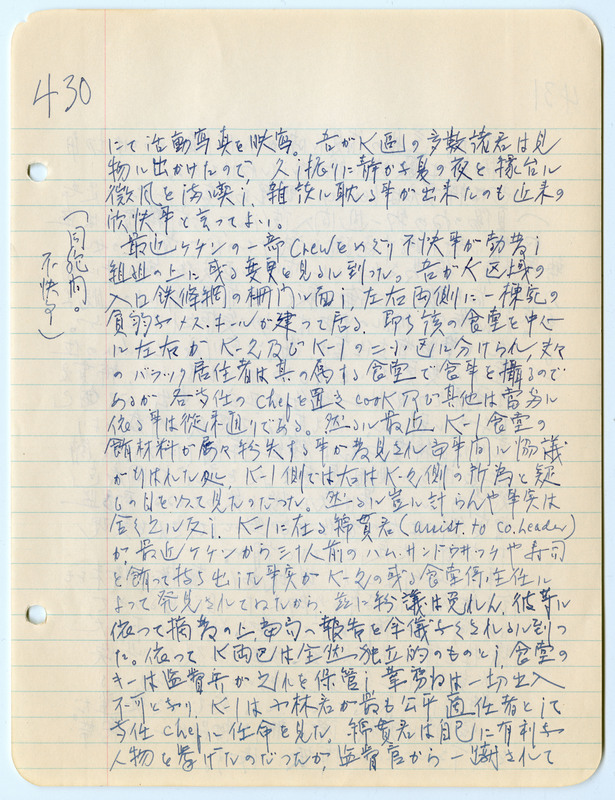 430
にて活動寫真を映寫。吾がK區の多数諸君は見
物に出かけたので、久し振りに静かな夏の夜を縁台に
微風を満喫し、雑談に耽る事が出来たのも近来の
欣快事と言ってよい。
(同胞間の
不快事)
最近ケケンの一部Crewをめぐり不快事が勃發し
組織の上に或る変更を見るに到った。吾がK区域の
入口鉄條網の柵門に面し、左右両側に一棟宛の
貧弱なメス・ホールが建って居る。即ち該の食堂を中心
に左右がK-2及びK-1の二小区に分けられ、夫々
のバラック居住者は其の属する食堂で食事を攝るので
あるが各当任のchefを置きcook及び其他は當番に
依る事は従来通りである。然るに最近K-1食堂の
飯材料が屡々紛失する事が発見され幹事間に協議
が行はれた処、K-1側では右はK-2側の所為と疑
ひの目を以て見たのだった。然るに豈に計らんや事実は
全く之に反し、K-1に在る綿貫君(assist. to co. leader)
が最近ケケンから三十人前のハム・サンドウ井ッチや寿司
を飾って持ち出した事実がK-2の或る食堂係主任に
よって発見されてゐたから、茲に紛議は免れん、彼等に
依って摘發の上当局へ報告を余儀なくされるに到っ
た。依ってK両区は全然独立的のものとし、食堂の
キーは監督兵が之れを保管し業務外は一切出入
不可となり、K-1は小林君が最も公平適任者として
当任chefに任命を見た。綿貫君は自己に有利な
人物を挙げたのだったが、監督官から一蹴されて